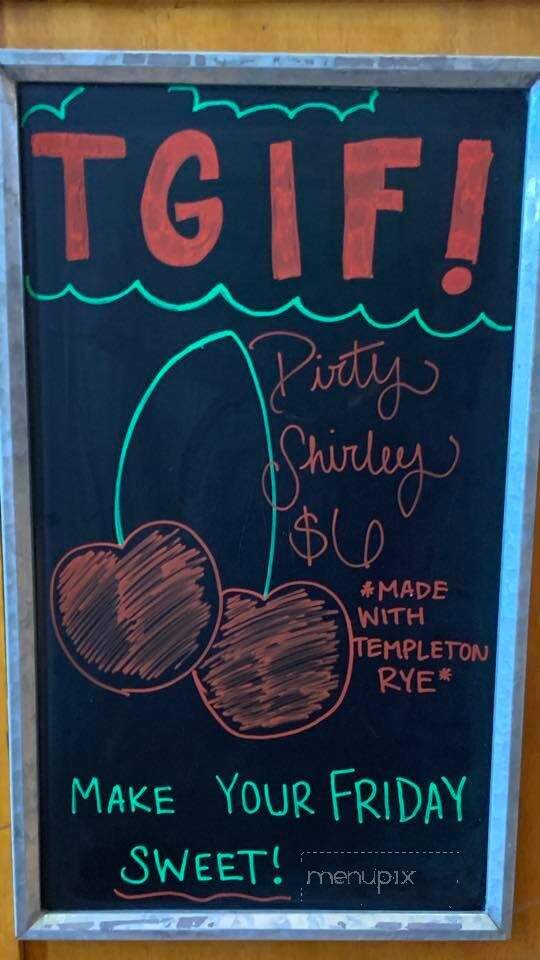 TGIF!
Dirty
Shirley
$6
*MADE
WITH
TEMPLETON
RYE*
MAKE YOUR FRIDAY
SWEET!
menupix